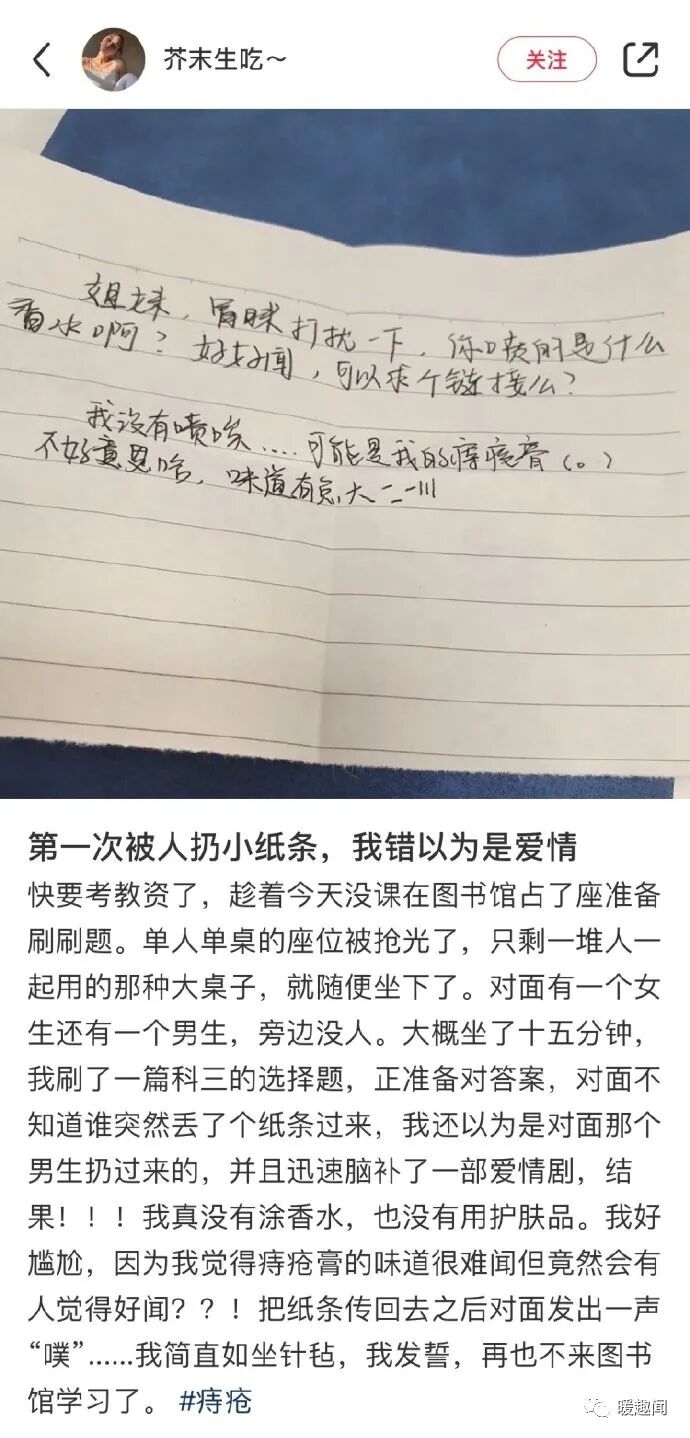 芥末生吃~
关注
姐妹，冒昧打扰一下，你喷的是什么
香水啊？好好闻，可以求个链接么？
我没有喷唉....可能是我的痔疮膏(。)
不好意思哈，味道有点大二三川
第一次被人扔小纸条，我错以为是爱情
快要考教资了，趁着今天没课在图书馆占了座准备
刷刷题。单人单桌的座位被抢光了，只剩一堆人一
起用的那种大桌子，就随便坐下了。对面有一个女
生还有一个男生，旁边没人。大概坐了十五分钟，
我刷了一篇科三的选择题，正准备对答案，对面不
知道谁突然丢了个纸条过来，我还以为是对面那个
男生扔过来的，并且迅速脑补了一部爱情剧，结
果！！！我真没有涂香水，也没有用护肤品。我好
尴尬，因为我觉得痔疮膏的味道很难闻但竟然会有
人觉得好闻？？！把纸条传回去之后对面发出一声
“噗”......我简直如坐针毡，我发誓，再也不来图书
馆学习了。 #痔疮
暖趣闻